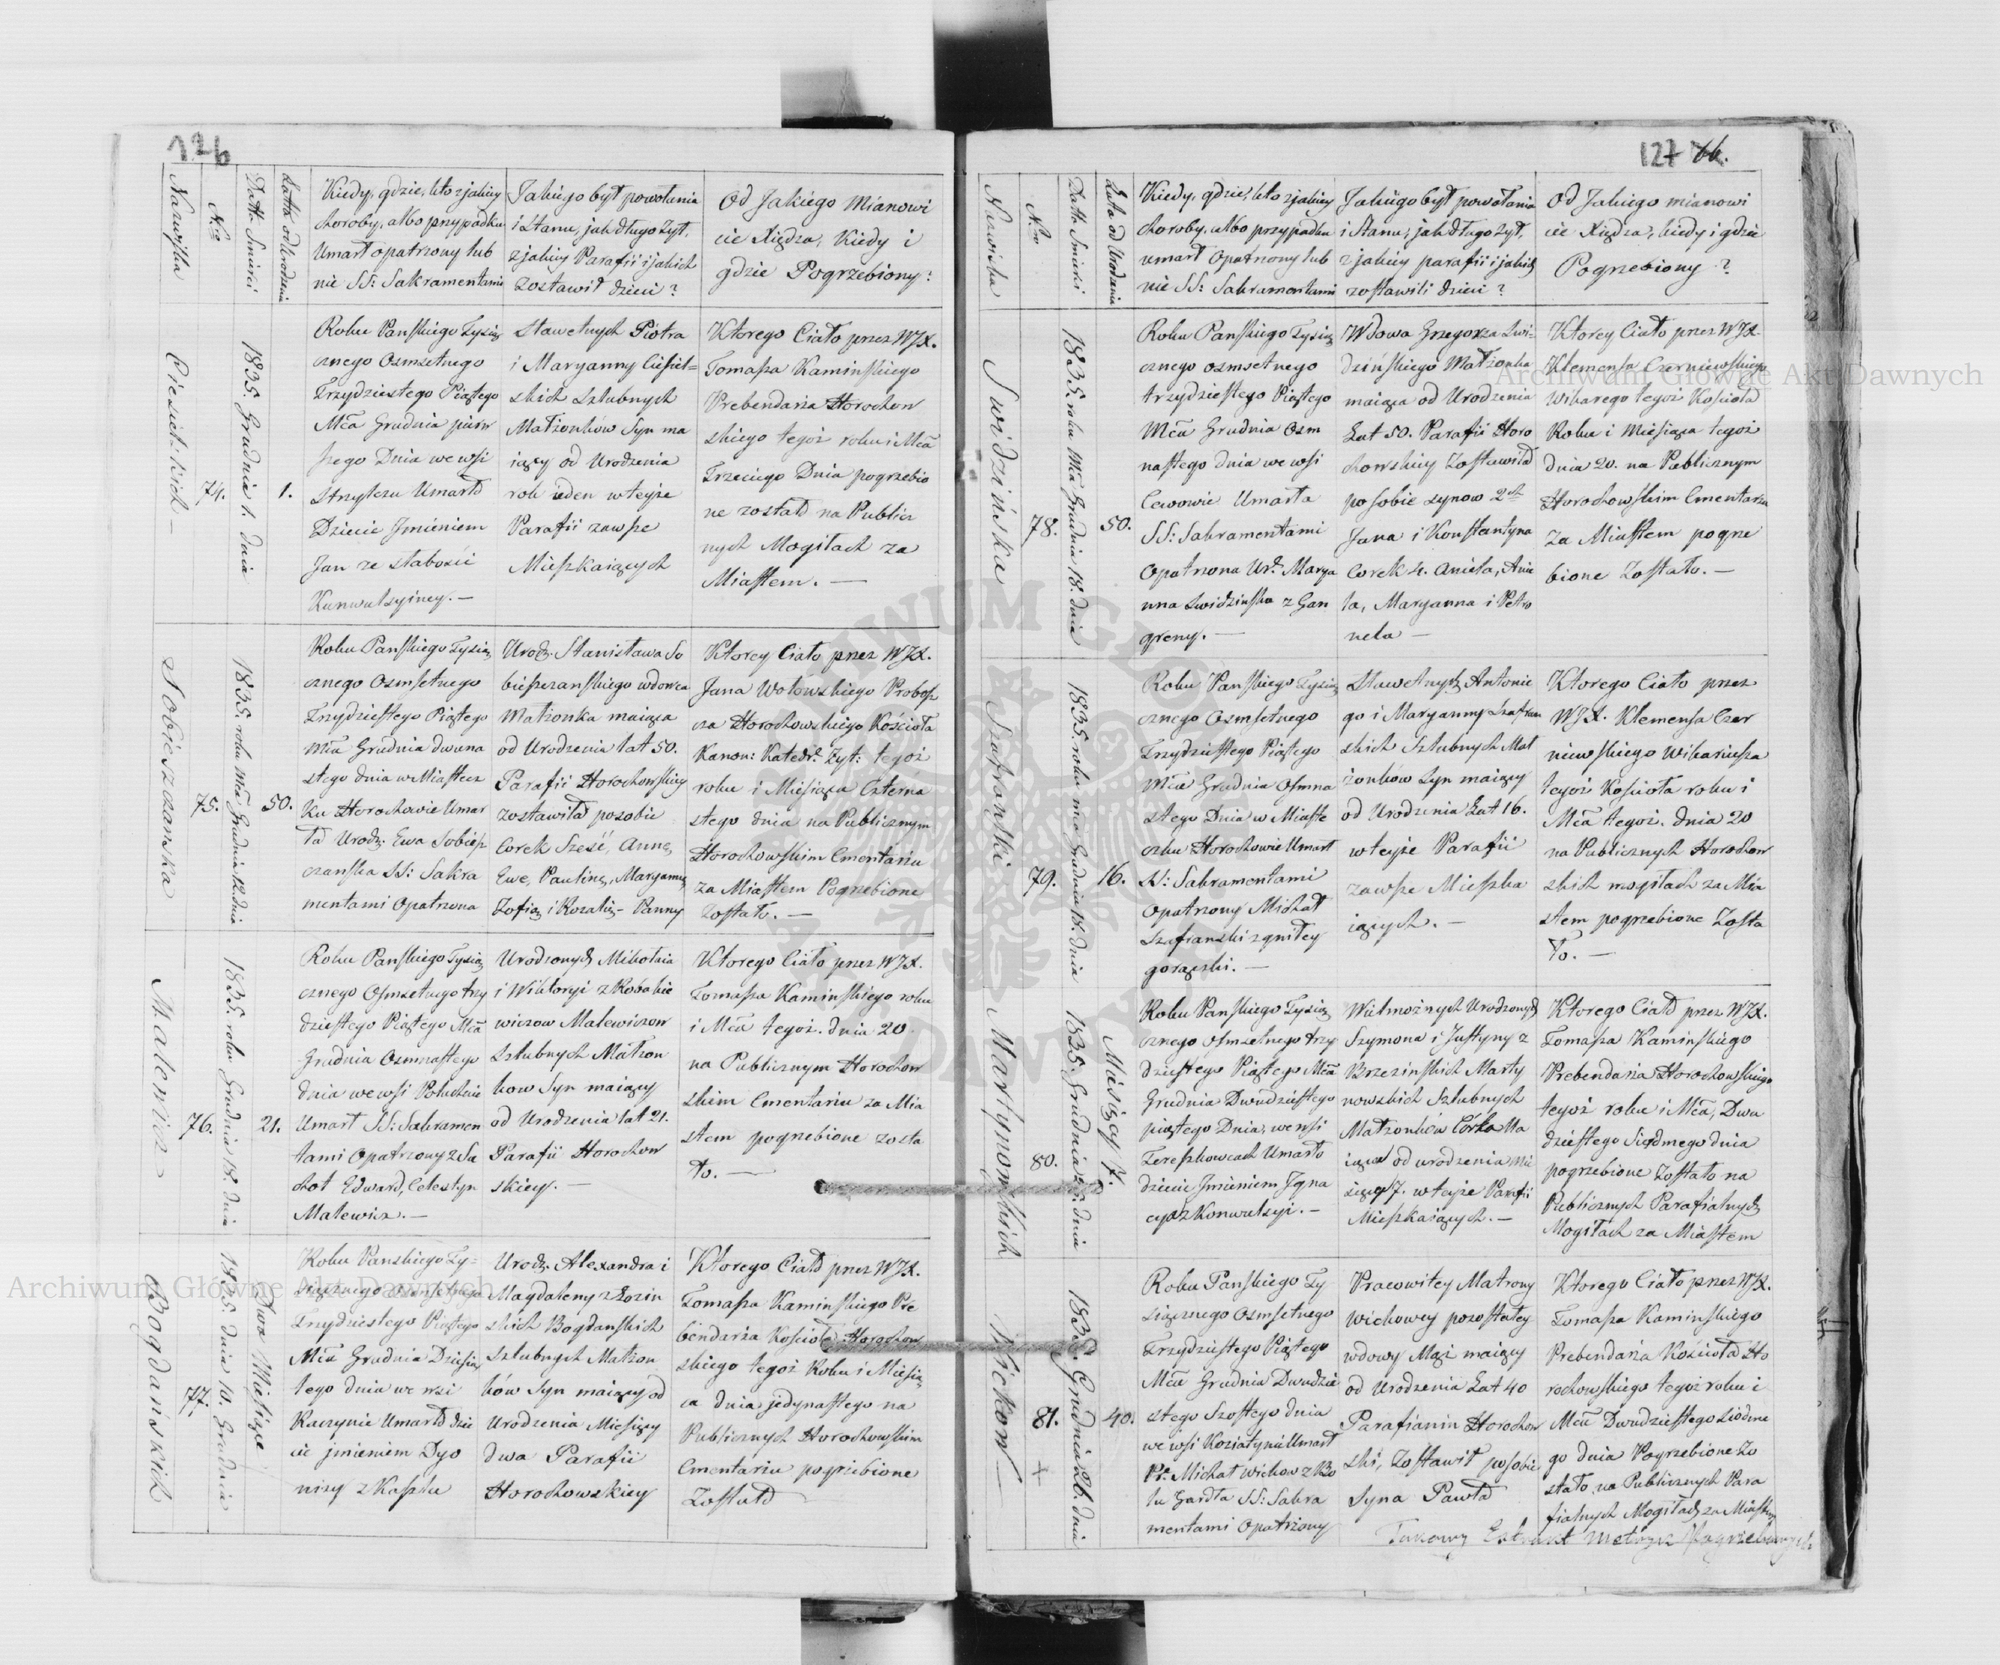 126
Nazwiska
Nro
Datta Smierci
Latta od Urodzenia
Kiedy, gdzie, kto z jakiey
choroby, albo przypadku
Umarł opatrzony lub
nie SS: Sakramentami
Jakiego był powołania
i Stanu, jak długo żył,
z jakiey Parafii i jakich
zostawił dzieci?
Od Jakiego Mianowi
cie Xiędza, Kiedy i
gdzie Pogrzebiony:
Ciesielskich –
74.
1835. Grudnia 1. dnia
1.
Roku Pańskiego Tysią
cznego Osmsetnego
Trzydziestego Piątego
Mca Grudnia pierw
szego Dnia we wsi
Umarło
Dziecie Jmieniem
Jan ze słabości
Kunwulsyiney. –
Sławetnych Piotra
i Maryanny Ciesiel=
skich Szlubnych
Małżonków Syn ma
iący od Urodzenia
rok ieden w teyże
Parafii zawsze
Mieszkaiących
Ktorego Ciało przez WJX.
Tomasza Kaminskiego
Prebendarza Horochow
skiego tegoż roku i Mca
Trzeciego Dnia pogrzebio
ne zostało na Publicz
nych Mogiłach za
Miastem. –
Sobieszczanska
75.
1835. roku Mca Grudnia 12. dnia
50.
Roku Pańskiego Tysią
cznego Osmsetnego
Trzydziestego Piątego
Mca Grudnia dwuna
stego dnia w Miastecz
ku Horochowie Umar
ła Urodz. Ewa Sobiesz
czanska SS: Sakra
mentami Opatrzona
Urodz. Stanisława So
bieszczanskiego wdowca
Małżonka maiąca
od Urodzenia lat 50.
Parafii Horochowskiey
zostawiła posobie
Corek Sześć, Annę,
Ewe, Paulinę, Maryannę,
Zofią i Rozalię – Panny
Ktorey Ciało przez WJX.
Jana Wołowskiego Probosz
cza Horochowskiego Kościoła
Kanon: Katedr: Żyt: tegoż
roku i Miesiąca Czterna
stego dnia na Publicznym
Horochowskim Cmentarzu
za Miastem Pogrzebione
Zostało. –
Malewicz
76.
1835. roku Grudnia 18. dnia
21.
Roku Panskiego Tysią
cznego Osmsetnego trzy
dziestego Piątego Mca
Grudnia Osmnastego
dnia we wsi
Umarł SS: Sakramen
tami Opatrzony z Su
chot Edward, Celestyn
Malewicz. –
Urodzonych Mikołaia
i Wiktoryi z Kobakie
wiczow Malewiczow
Szlubnych Małżon
kow Syn maiący
od Urodzenia lat 21.
Parafii Horochow
skiey. –
Ktorego Ciało przez WJX.
Tomasza Kaminskiego roku
i Mca tegoż. dnia 20
na Publicznym Horochow
skim Cmentarzu za Mia
stem pogrzebione zosta
ło. –
Bogdanskich
77.
1835. dnia 10. Grudnia
Dwa Miesiące
Roku Panskiego Ty=
siącznego Osmsetnego
Trzydziestego Piątego
Mca Grudnia Dziesią
tego dnia we wsi
Raczynie Umarło dzie
cie jmieniem Dyo
nizy z Kaszlu
Urodz. Alexandra i
Magdaleny z Łozin
skich Bogdanskich
Szlubnych Małżon
ków Syn maiący od
Urodzenia Miesięcy
dwa Parafii
Horochowskiey
Ktorego Ciało przez WJX.
Tomasza Kaminskiego Pre
bendarza Kościoła Horochow
skiego tegoż Roku i Miesią
ca dnia jedynastego na
Publicznych Horochowskim
Cmentarzu pogrzebione
Zostało
127
Nazwiska
Nro
Datta Smierci
Lata od Urodzenia
Kiedy, gdzie, kto z jakiey
choroby, albo przypadku
umarł opatrzony lub
nie SS: Sakramentami
Jakiego był powołania
i Stanu, jak długo żył,
z jakiey parafii i jakich
zostawił dzieci?
Od Jakiego mianowi
cie Xiędza, kiedy i gdzie
Pogrzebiony?
Swidzińska
78.
1835. roku Mca Grudnia 18. dnia
50.
Roku Pańskiego Tysią
cznego osmsetnego
trzydziestego Piątego
Mca Grudnia Osm
nastego dnia we wsi
Cewowie Umarła
SS: Sakramentami
Opatrzona Ur. Marya
nna Swidzinska z Gan
greny. –
Wdowa Grzegorza Swi-
dzińskiego Małżonka
maiąca od Urodzenia
Lat 50. Parafii Horo
chowskiey Zostawiła
posobie synow 2ch
Jana i Konstantyna
Corek 4. Aniela, Anie
la, Maryanna i Petro
nela –
Ktorey Ciało przez WJX
Klemensa Czerniewskiego
Wikarego tegoż Kościoła
Roku i Miesiąca tegoż
dnia 20. na Publicznym
Horochowskim Cmentarzu
Za Miastem pogrze
bione Zostało. –
Szafranski
79.
1835. roku mca Grudnia 18. dnia
16.
Roku Panskiego Tysią
cznego Osmsetnego
Trzydziestego Piątego
Mca Grudnia Osmna
stego Dnia w Miaste
czku Horochowie Umarł
SS: Sakramentami
Opatrzony Michał
Szafranski z gniłey
gorączki. –
Sławetnych Antonie
go i Maryanny Szafran
skich Szlubnych Mał
żonków Syn maiący
od Urodzenia Lat 16.
w teyże Parafii
zawsze Mieszka
iących. –
Ktorego Ciało przez
WJX. Klemensa Czer
niewskiego Wikariusza
tegoż Kościoła roku i
Mca tegoż. dnia 20
na Publicznych Horochow
skich mogiłach za Mia
stem pogrzebione Zosta
ło. –
Martynowskich
80.
1835. Grudnia 25. dnia
Miesięcy 7.
Roku Panskiego Tysią
cznego osmsetnego trzy
dziestego Piątego Mca
Grudnia Dwudziestego
piątego Dnia, we wsi
Tereszkowcach Umarło
dziecie Jmieniem Igna
cy z Konwulsyi. –
Wielmożnych Urodzonych
Szymona i Justyny z
Brzezinskich Marty
nowskich Szlubnych
Małżonków Córka Ma
iąca od urodzenia Mie
sięcy 7. w teyże Parafii
Mieszkaiących. –
Ktorego Ciało przez WJX.
Tomasza Kaminskiego
Prebendarza Horochowskiego
tegoż roku i Mca, Dwu
dziestego Siódmego dnia
pogrzebione Zostało na
Publicznych Parafialnych
Mogiłach za Miastem
Wichow –
81.
+
1835. Grudnia 26. dnia
40.
Roku Panskiego Ty
siącznego Osmsetnego
Trzydziestego Piątego
Mca Grudnia Dwudzie
stego Szostego dnia
we wsi Koziatynie Umarł
Pr. Michał Wichow z Bo
lu Gardła SS: Sakra
mentami Opatrzony
Pracowitey Matrony
Wichowey pozostałey
wdowy Mąż maiący
od Urodzenia Lat 40
Parafianin Horochow
ski, Zostawił posobie
Syna Pawła
Ktorego Ciało przez WJX.
Tomasza Kaminskiego
Prebendarza Kościoła Ho
rochowskiego tegoż roku i
Mca Dwudziestego Siódme
go dnia Pogrzebione Zo
stało na Publicznych Para
fialnych Mogiłach za Miastem
Takowy Extrakt Metryk Pogrzebowych
Archiwum Główne Akt Dawnych
Archiwum Główne Akt Dawnych
ARCHIWUM GŁÓWNE AKT DAWNYCH